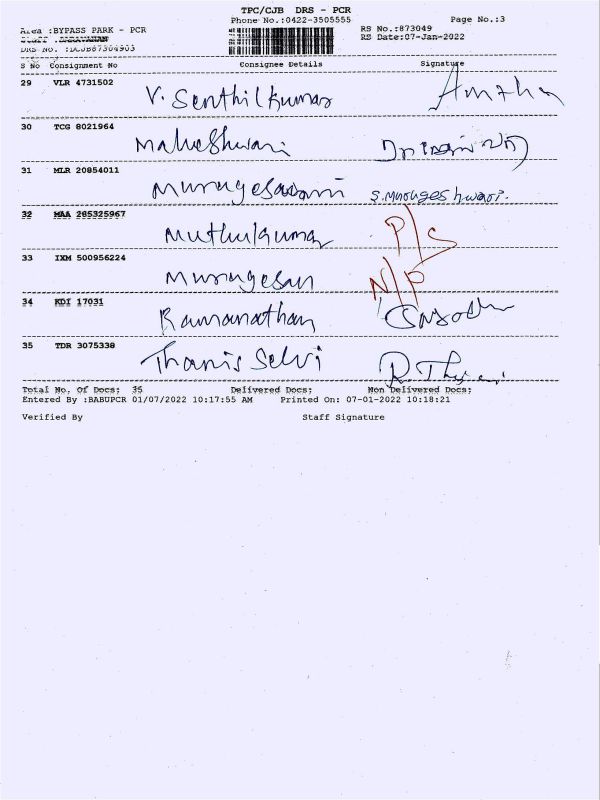 TPC/CJB DRS - PCR
Area :BYPASS PARK - PCR Phone No.:0422-3505555 RS No.:873049 Page No.:3
RS Date:07-Jan-2022
DRS No. :DCJB87304903
S No Consignment No Consignee Details Signature
29 VLR 4731502 V. Senthilkumar Amtha
30 TCG 8021964 Maheshwari
31 MLR 20854011 Murugesawari S.Murugeshwari.
32 MAA 285325967 Muthukumar P/S
33 IXM 500956224 Murugesan N/P
34 KDI 17031 Ramanathan
35 TDR 3075338 Thanis Selvi
Total No. Of Docs: 35 Delivered Docs: Non Delivered Docs:
Entered By :BABUPCR 01/07/2022 10:17:55 AM Printed On: 07-01-2022 10:18:21
Verified By Staff Signature